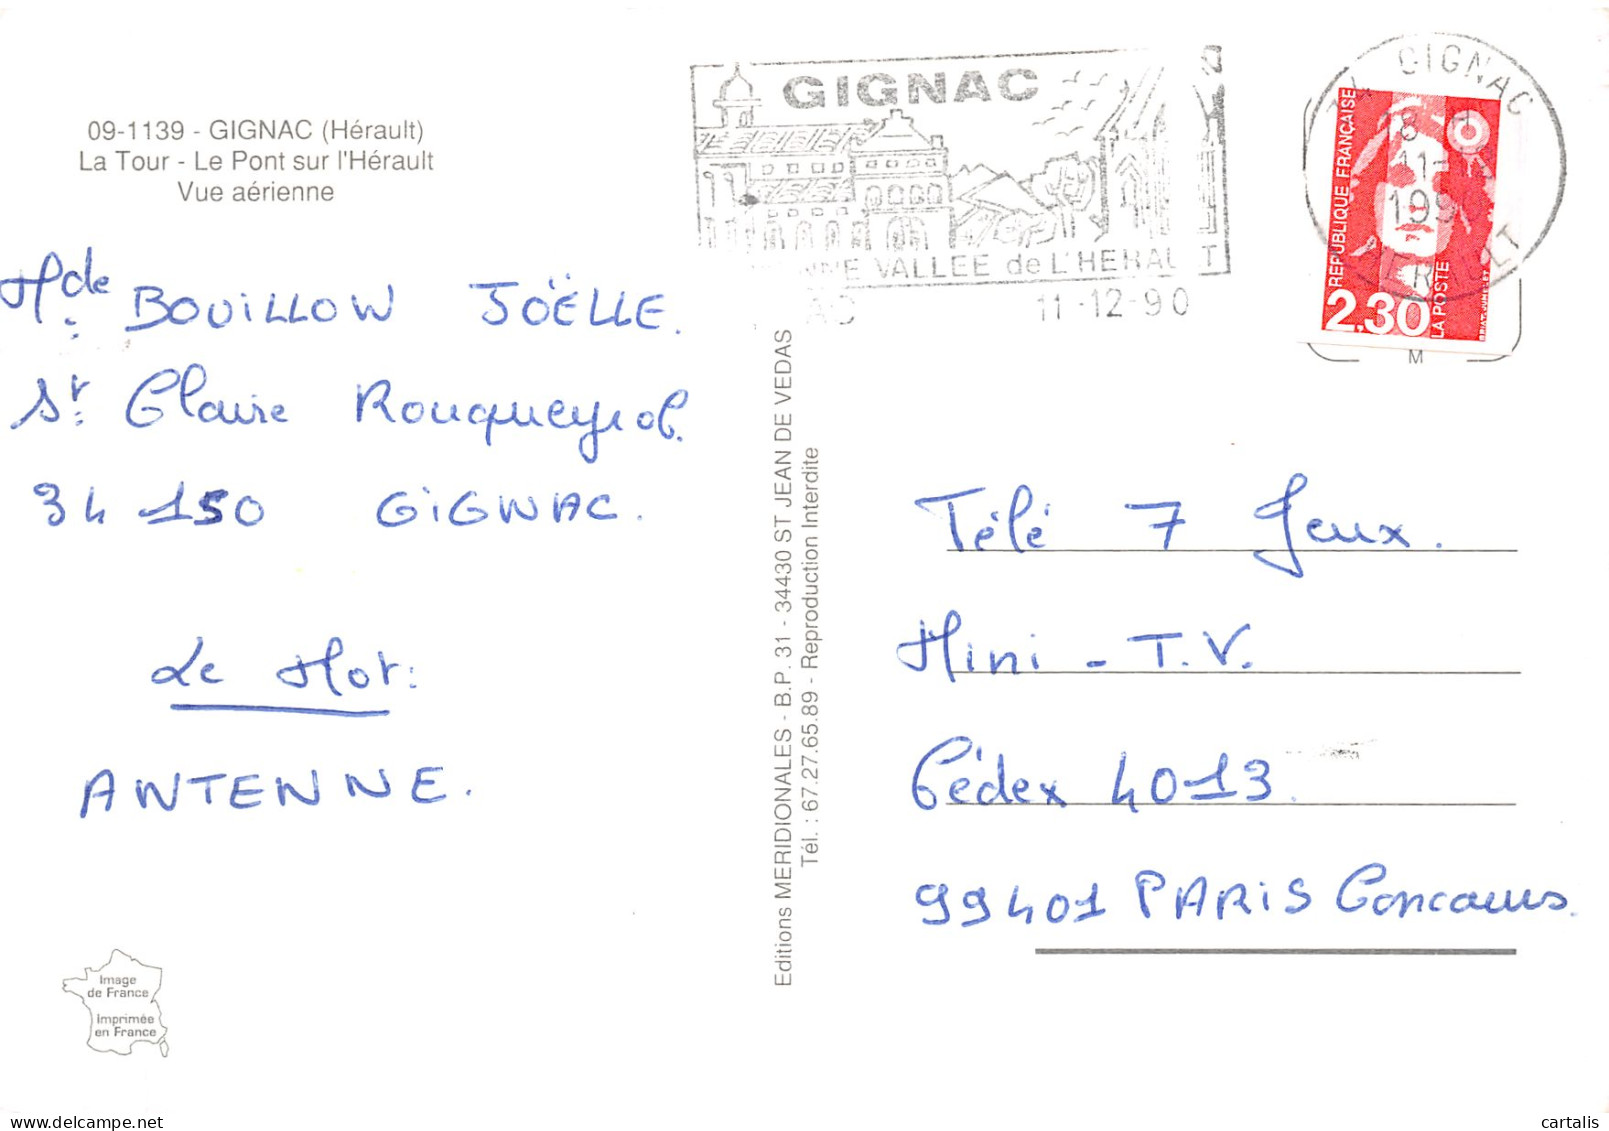 09-1139 - GIGNAC (Hérault)
La Tour - Le Pont sur l'Hérault
Vue aérienne
Mde BOUILLOW JOËLLE.
St Claire Rouqueyrol.
34 150 GIGNAC.
Le Mot:
ANTENNE.
Image
de France
Imprimée
en France
Editions MERIDIONALES - B.P. 31 - 34430 ST JEAN DE VEDAS
Tél. : 67.27.65.89 - Reproduction Interdite
GIGNAC
VALLEE de L'HERAULT
11-12-90
GIGNAC
11-
REPUBLIQUE FRANÇAISE
2,30
LA POSTE
M
Télé 7 Jeux.
Mini - T.V.
Cédex 4013.
99401 PARIS Concours.
cartalis
www.delcampe.net